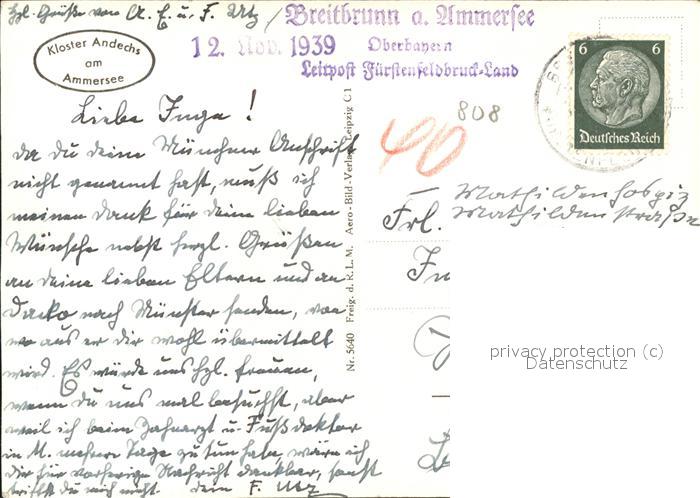 Hzl. Grüße von A. E. u. F. Utz /
Breitbrunn a. Ammersee
12. Nov. 1939
Oberbayern
Leitpost Fürstenfeldbruck-Land
Kloster Andechs
am
Ammersee
6 6
Deutsches Reich
808
40
Liebe Inge!
da du deine Münchner Anschrift
nicht genannt hast, muß ich
meinen Dank für deine lieben
Wünsche nebst herzl. Grüßen
an deine lieben Eltern und an
nach Münster senden, von
wo aus er dir wohl übermittelt
wird. Es würde uns hzl. freuen,
wenn du uns mal besuchst, aber
weil ich beim Zahnarzt u. Fußdoktor
in M. mehrere Tage zu tun habe, wäre ich
dir für vorherige Nachricht dankbar, sonst
triffst du mich nicht. Dein F. Utz
Nr. 5640 Freig. d. R.L.M. Aero-Bild-Verlag Leipzig C 1
Mathildenhospiz
Frl. Mathildenstraße
privacy protection (c)
Datenschutz